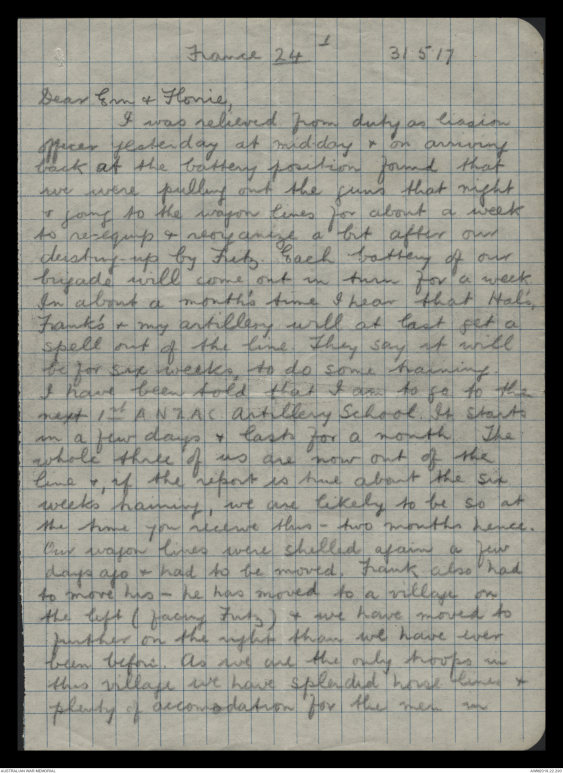 France 24 1 31 5 17
Dear Em & Florrie,
I was relieved from duty as liasion
officer yesterday at midday & on arriving
back at the battery position found that
we were pulling out the guns that night
& going to the wagon lines for about a week
to re-equip & reorganize a bit after our
dusting-up by Fritz. Each battery of our
brigade will come out in turn for a week.
In about a month's time I hear that Hal's,
Frank's & my artillery will at last get a
spell out of the line. They say it will
be for six weeks, to do some training.
I have been told that I am to go to the
next 1st ANZAC Artillery School. It starts
in a few days & lasts for a month. The
whole three of us are now out of the
line &, if the report is true about the six
weeks training, we are likely to be so at
the time you receive this - two months hence.
Our wagon lines were shelled again a few
days ago & had to be moved. Frank also had
to move his - he has moved to a village on
the left (facing Fritz) & we have moved to
further on the right than we have ever
been before. As we are the only troops in
this village we have splendid horse lines &
plenty of accomodation for the men in
AUSTRALIAN WAR MEMORIAL